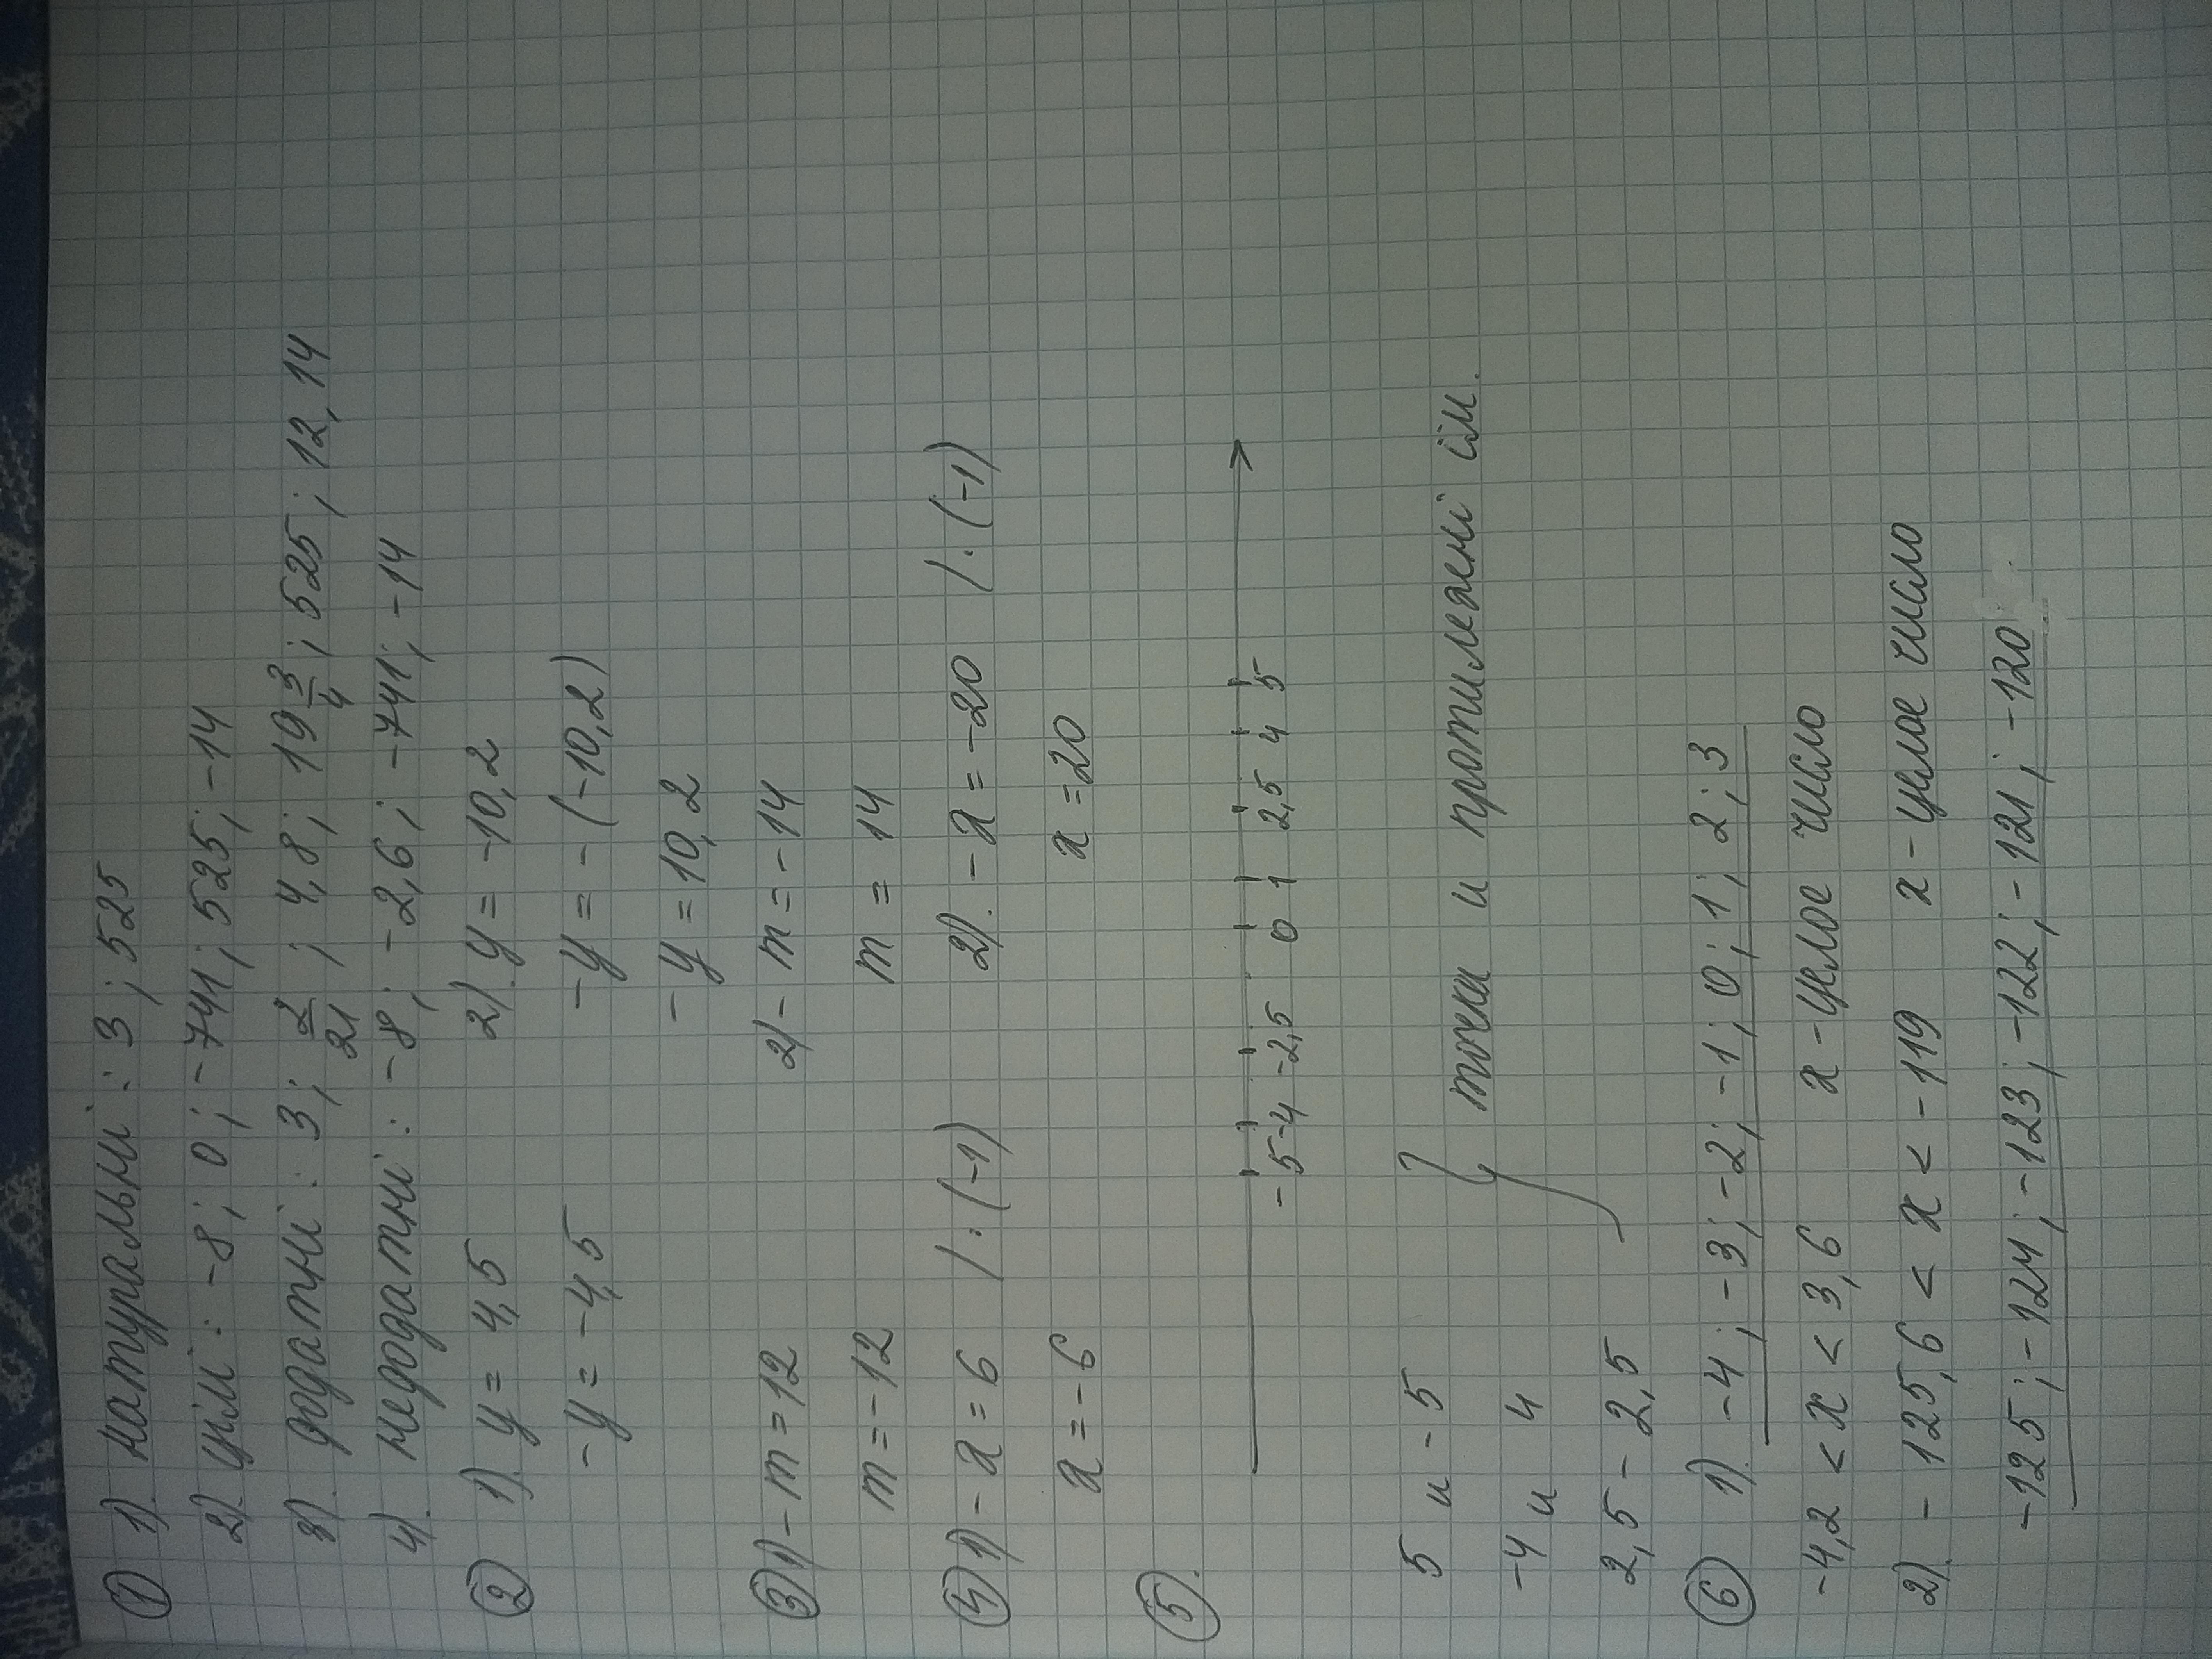 ① 1). натуральні : 3 ; 525
2). цілі : -8 ; 0 ; -741 ; 525 ; -14
3). додатні : 3 ; 2/21 ; 4,8 ; 19 3/4 ; 525 ; 12,14
4). недодатні : -8 ; -2,6 ; -741 ; -14
② 1). y = 4,5 2). y = -10,2
-y = -4,5 -y = -(-10,2)
-y = 10,2
③ 1) -m = 12 2) -m = -14
m = -12 m = 14
④ 1) -x = 6 / : (-1) 2). -x = -20 / · (-1)
x = -6 x = 20
⑤.
-5 -4 -2,5 0 1 2,5 4 5
5 и -5
-4 и 4 } точки и протилежні їм.
2,5 - 2,5
⑥ 1). -4 ; -3 ; -2 ; -1 ; 0 ; 1 ; 2 ; 3
-4,2 < x < 3,6 x - целое число
2). -125,6 < x < -119 x - целое число
-125 ; -124 ; -123 ; -122 ; -121 ; -120